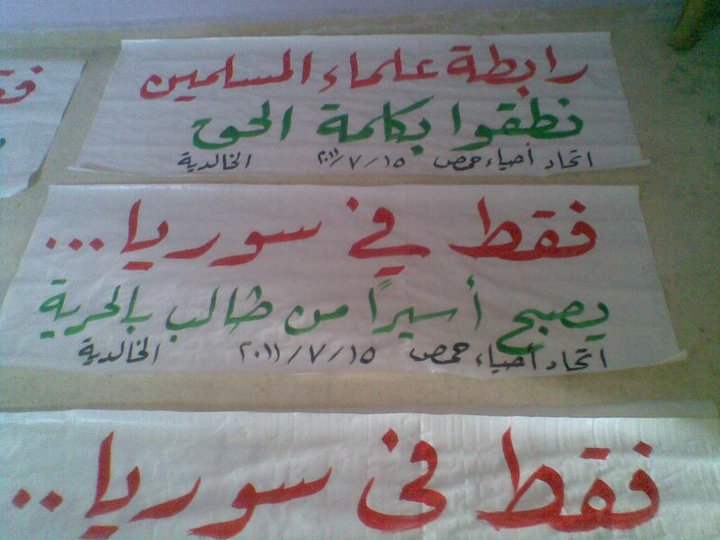 رابطة علماء المسلمين
نطقوا بكلمة الحق
اتحاد أحياء حمص ١٥/٧/٢٠١١ الخالدية
فقط في سوريا...
يصبح أسيراً من طالب بالحرية
اتحاد أحياء حمص ١٥/٧/٢٠١١ الخالدية
فقط فى سوريا..